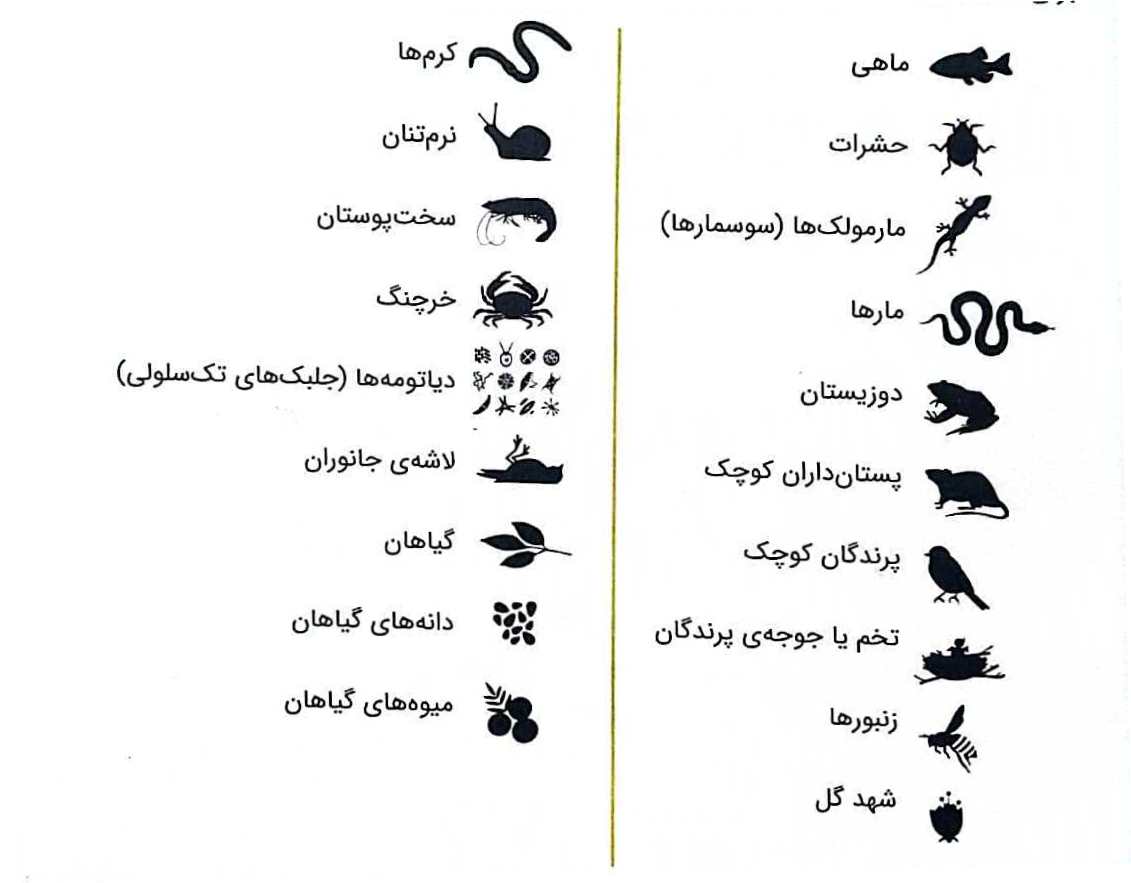 ماهی
حشرات
مارمولک‌ها (سوسمارها)
مارها
دوزیستان
پستان‌داران کوچک
پرندگان کوچک
تخم یا جوجه‌ی پرندگان
زنبورها
شهد گل
کرم‌ها
نرم‌تنان
سخت‌پوستان
خرچنگ
دیاتومه‌ها (جلبک‌های تک‌سلولی)
لاشه‌ی جانوران
گیاهان
دانه‌های گیاهان
میوه‌های گیاهان